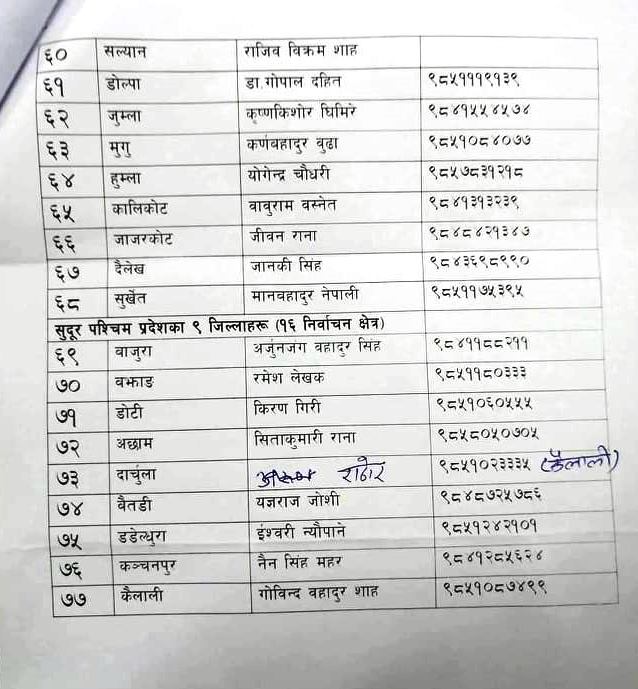 ६० सल्यान राजिव विक्रम शाह
६१ डोल्पा डा.गोपाल दहित ९८५१११९१३९
६२ जुम्ला कृष्णकिशोर घिमिरे ९८४१५५४५७४
६३ मुगु कर्णबहादुर वुढा ९८५१०८४०७७
६४ हुम्ला योगेन्द्र चौधरी ९८५७८३१२१८
६५ कालिकोट वावुराम वस्नेत ९८४१३१३२३९
६६ जाजरकोट जीवन राना ९८४८४२१३४७
६७ दैलेख जानकी सिंह ९८४३६९८९९०
६८ सुर्खेत मानवहादुर नेपाली ९८५११७५३९५
सुदूर पश्चिम प्रदेशका ९ जिल्लाहरू (१६ निर्वाचन क्षेत्र)
६९ वाजुरा अर्जुनजंग वहादुर सिंह ९८४११८८२११
७० वझाङ रमेश लेखक ९८५११८०३३३
७१ डोटी किरण गिरी ९८५१०६०५५५
७२ अछाम सिताकुमारी राना ९८५८०५०७०५
७३ दार्चुला राठोर ९८५१०२३३३५ (कैलाली)
७४ वैतडी यज्ञराज जोशी ९८४८७२५७८६
७५ डडेल्धुरा ईश्वरी न्यौपाने ९८५१२४२१०१
७६ कञ्चनपुर नैन सिंह महर ९८४१२८५६२४
७७ कैलाली गोविन्द वहादुर शाह ९८५१०८७४९९